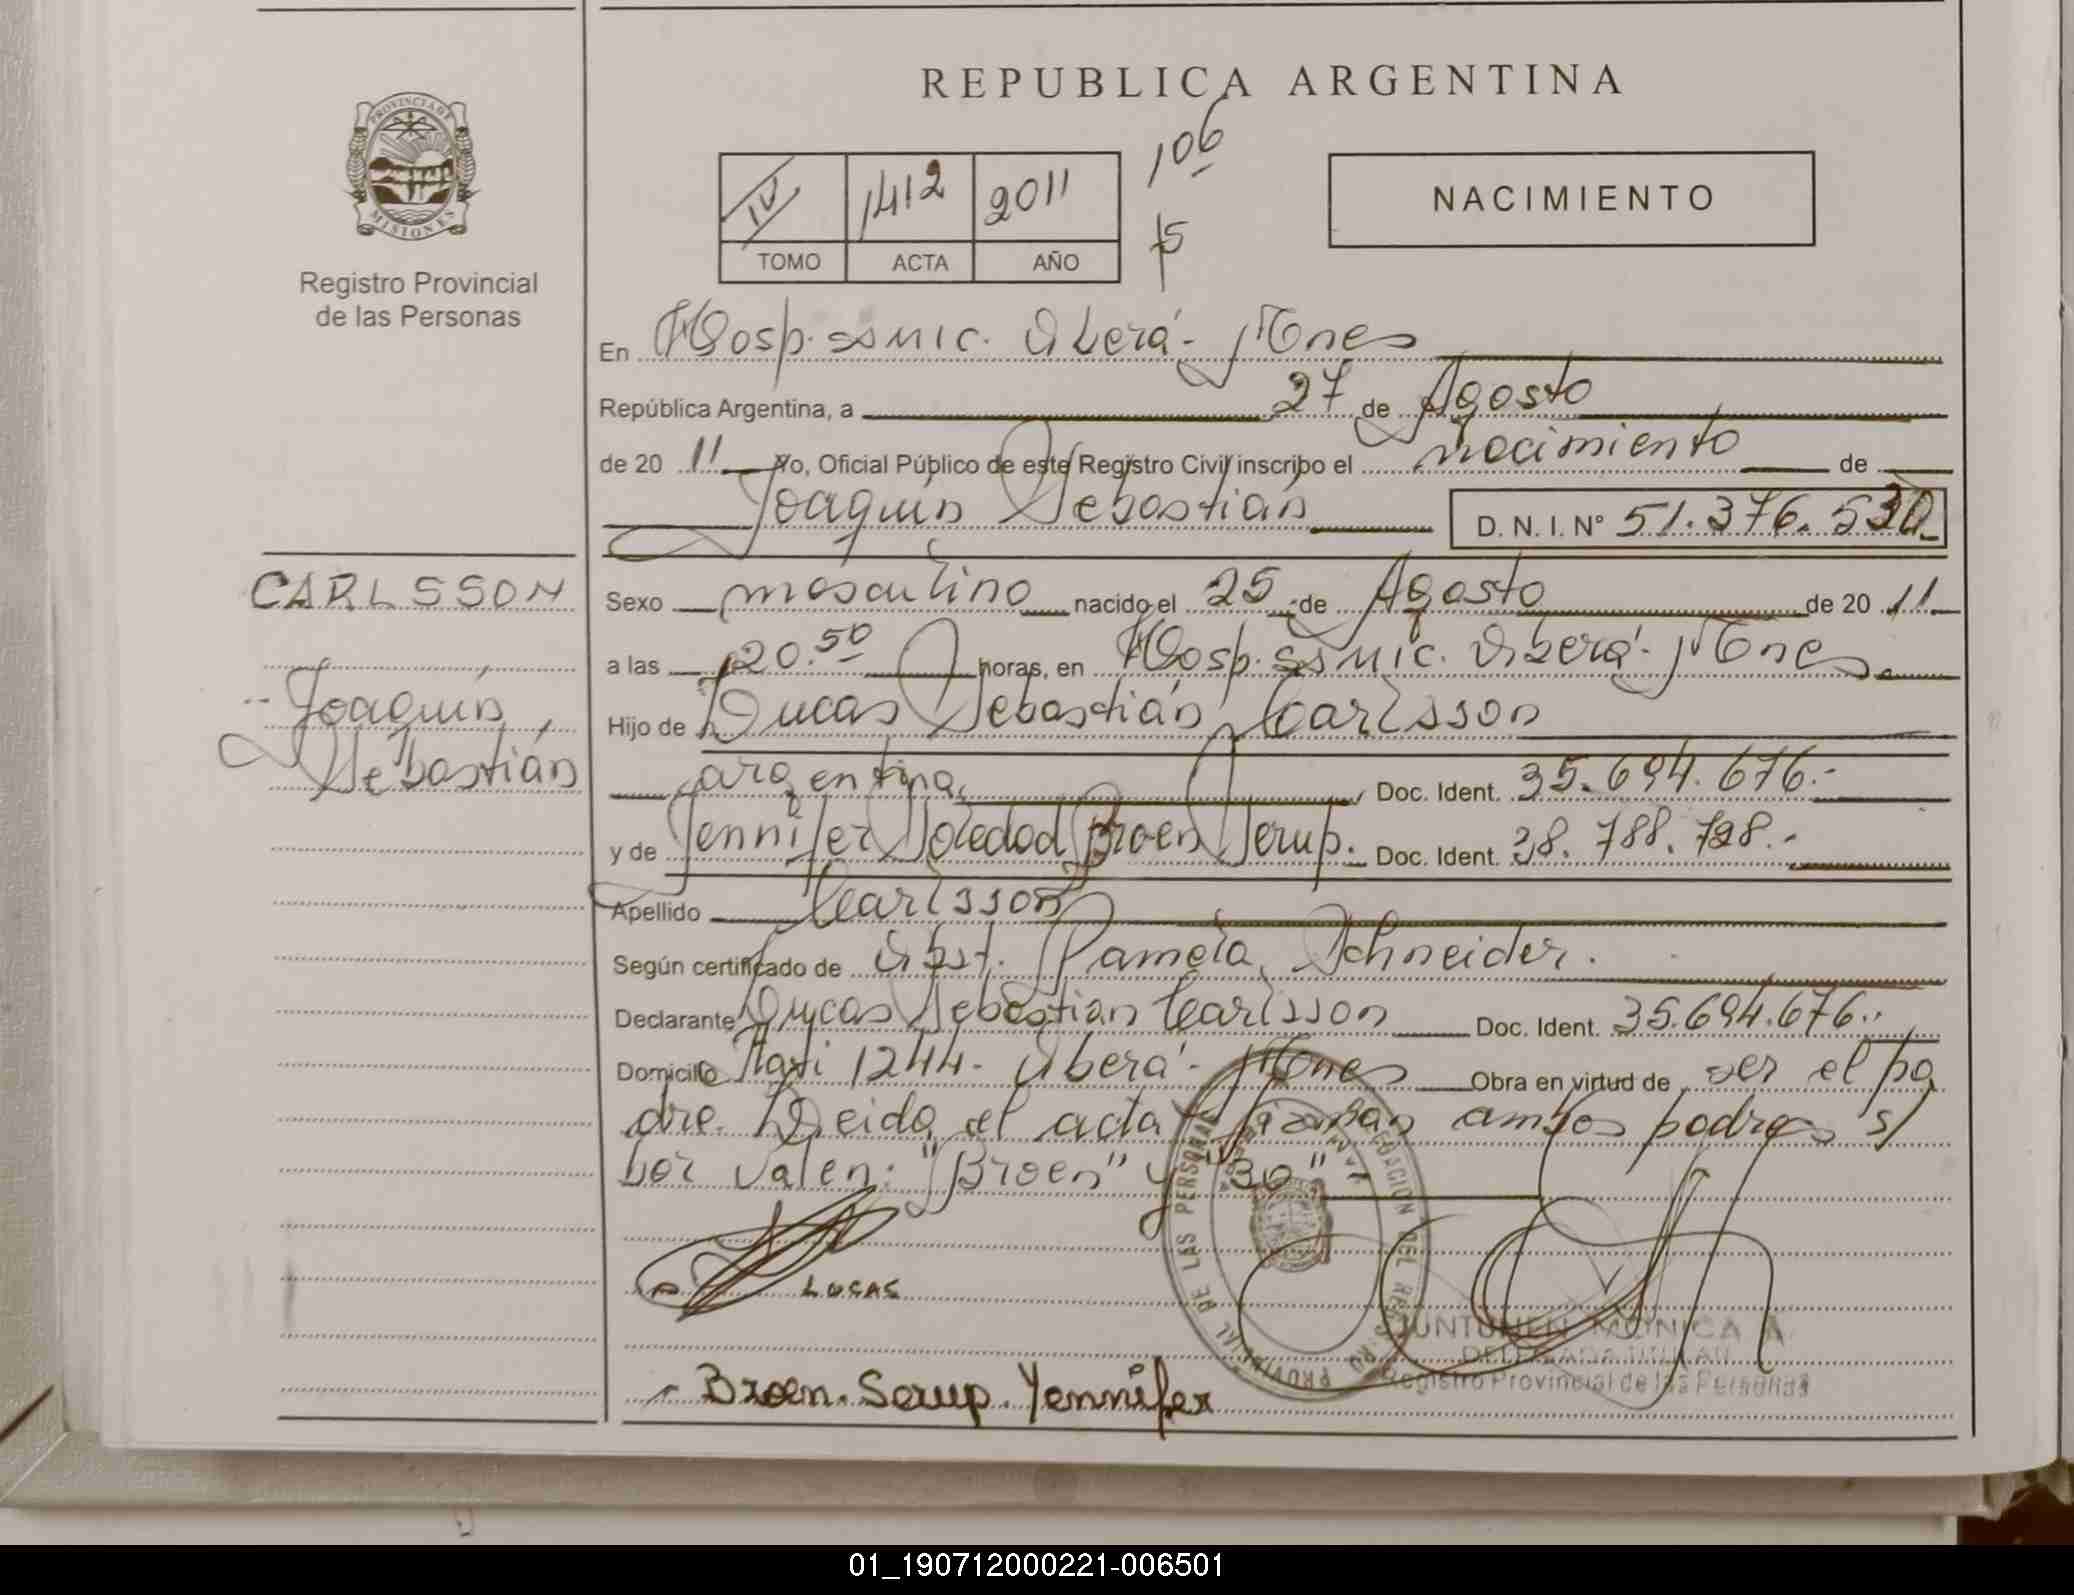 REPUBLICA ARGENTINA
PROVINCIA DE
MISIONES
Registro Provincial
de las Personas
IV 1412 2011
TOMO ACTA AÑO
106
NACIMIENTO
En Hosp. SAMIC. Oberá - Mnes
República Argentina, a 27 de Agosto
de 20 11 Yo, Oficial Público de este Registro Civil inscribo el nacimiento de
Joaquín Sebastián D. N. I. N° 51.376.530
CARLSSON
Joaquín
Sebastián
Sexo masculino nacido el 25 de Agosto de 20 11
a las 20.50 horas, en Hosp. SAMIC. Oberá - Mnes
Hijo de Lucas Sebastián Carlsson
argentina Doc. Ident. 35.694.676.-
y de Jennifer Soledad Broen Serup. Doc. Ident. 38.788.728.-
Apellido Carlsson
Según certificado de Obst. Pamela Schneider.
Declarante Lucas Sebastian Carlsson Doc. Ident. 35.694.676.-
Domicilio 1244 - Oberá - Mnes Obra en virtud de ser el pa
dre. Leida el acta firman ambos padres s/
bor valen: "Broen" y "30"
LUCAS
Broen. Serup. Yennifer
PROVINCIAL DE LAS PERSONAS
DELEGACION DEL REGISTRO
MONICA A
DELEGADA TITULAR
Registro Provincial de las Personas
01_190712000221-006501